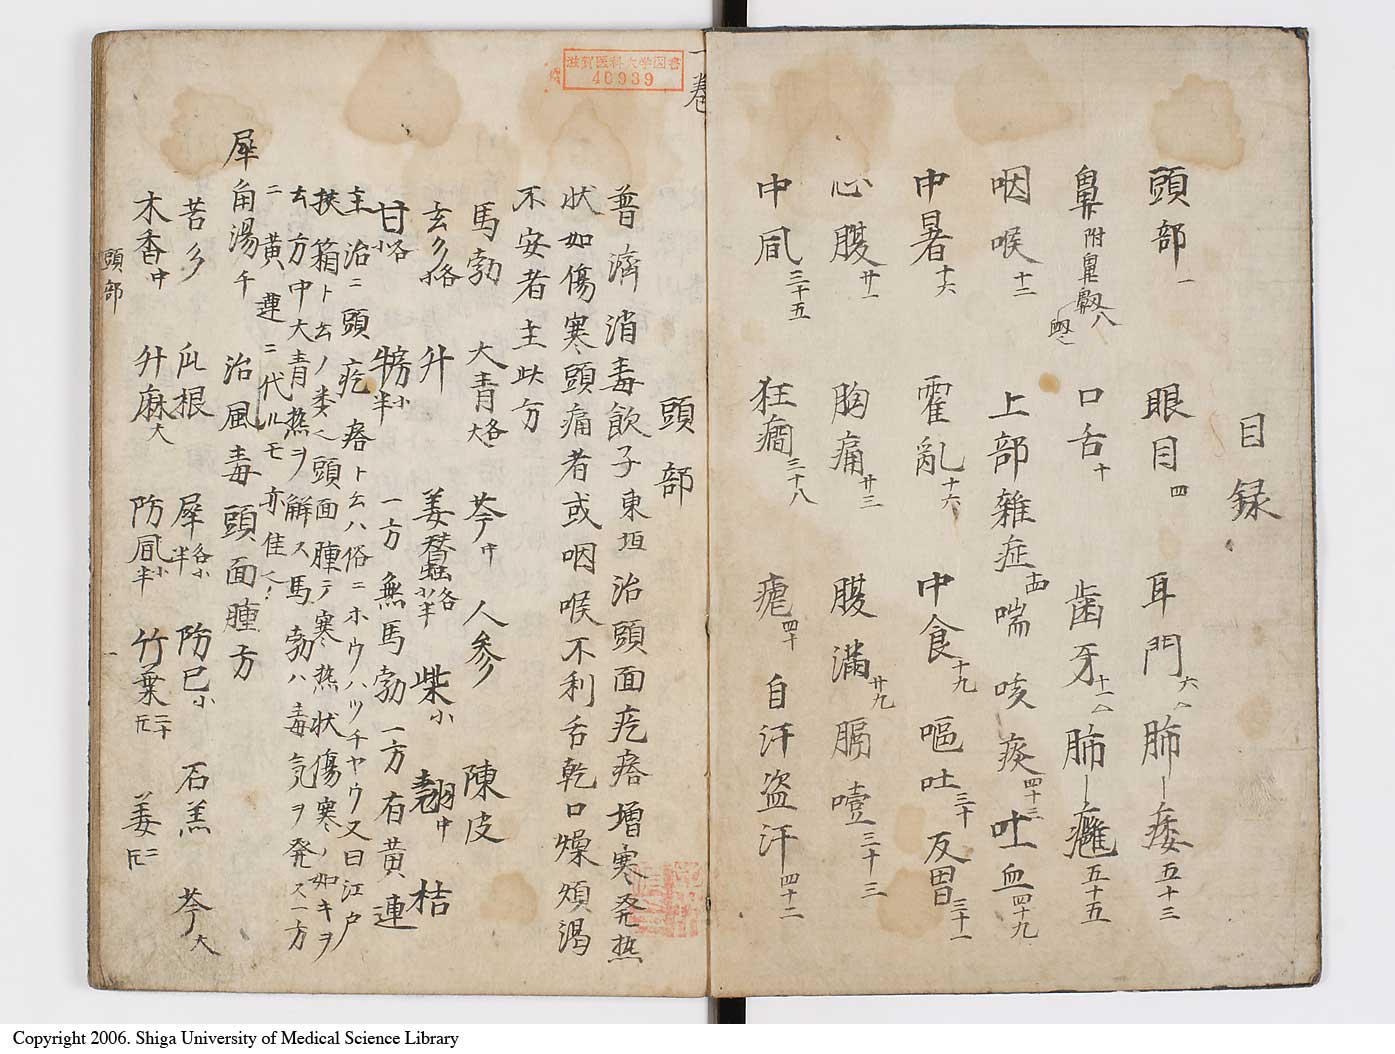 目録
頭部一 眼目四 耳門六 肺痿五十三
鼻附鼻 八 口舌十 歯牙十一 肺癰五十五
咽喉十二 上部雜症 喘咳痰四十三 吐血四十九
中暑十六 霍亂十六 中食十九 嘔吐三十 反胃三十一
心腹廿一 胸痛廿三 腹滿廿九 膈噎三十三
中風三十五 狂癇三十八 瘧四十 自汗盗汗四十二
一巻
滋賀医科大学図書
40939
頭部
普濟消毒飲子東垣治頭面疙瘩增寒発热
状如傷寒頭痛者或咽喉不利舌乾口燥煩渴
不安者主此方
馬勃 大青 芩中 人参 陳皮
玄 升 姜蠶 柴小 翹中 桔
甘 半 一方無馬勃一方有黄連
主治ニ頭疙瘩ト云ハ俗ニホウハツチヤウ又曰江戸
挾箱ト云ノ类 頭面腫テ寒热状傷寒ノ如キヲ
云方中大青热ヲ解ス馬勃ハ毒気ヲ発ス一方
ニ黄連ニ代ルモ亦佳
犀角湯千 治風毒頭面腫方
苦 根 犀 半 防已小 石羔 芩大
木香中 升麻大 防風小半 竹葉 姜
頭部
一
Copyright 2006. Shiga University of Medical Science Library